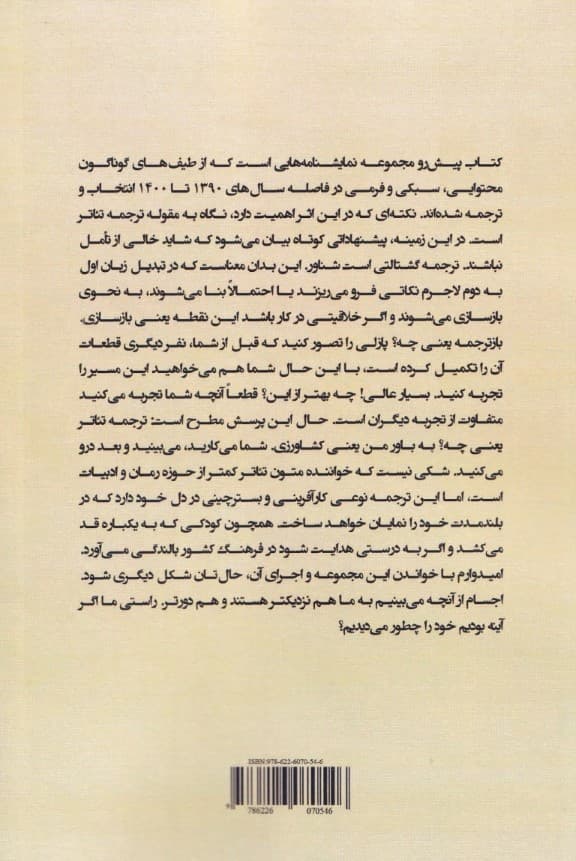 کتاب پیش‌رو مجموعه نمایشنامه‌هایی است که از طیف‌های گوناگون
محتوایی، سبکی و فرمی در فاصله سال‌های ۱۳۹۰ تا ۱۴۰۰ انتخاب و
ترجمه شده‌اند. نکته‌ای که در این اثر اهمیت دارد، نگاه به مقوله ترجمه تئاتر
است. در این زمینه، پیشنهاداتی کوتاه بیان می‌شود که شاید خالی از تأمل
نباشند. ترجمه گشتالتی است شناور. این بدان معناست که در تبدیل زبان اول
به دوم لاجرم نکاتی فرو می‌ریزند یا احتمالاً بنا می‌شوند، به نحوی
بازسازی می‌شوند و اگر خلاقیتی در کار باشد این نقطه یعنی بازسازی.
بازترجمه یعنی چه؟ پازلی را تصور کنید که قبل از شما، نفر دیگری قطعات
آن را تکمیل کرده است، با این حال شما هم می‌خواهید این مسیر را
تجربه کنید. بسیار عالی! چه بهتر از این؟ قطعاً آنچه شما تجربه می‌کنید
متفاوت از تجربه دیگران است. حال این پرسش مطرح است: ترجمه تئاتر
یعنی چه؟ به باور من یعنی کشاورزی. شما می‌کارید، می‌بینید و بعد درو
می‌کنید. شکی نیست که خواننده متون تئاتر کمتر از حوزه رمان و ادبیات
است، اما این ترجمه نوعی کارآفرینی و بسترچینی در دل خود دارد که در
بلندمدت خود را نمایان خواهد ساخت. همچون کودکی که به یکباره قد
می‌کشد و اگر به درستی هدایت شود در فرهنگ کشور بالندگی می‌آورد.
امیدوارم با خواندن این مجموعه و اجرای آن، حال‌تان شکل دیگری شود.
اجسام از آنچه می‌بینیم به ما هم نزدیکتر هستند و هم دورتر. راستی ما اگر
آینه بودیم خود را چطور می‌دیدیم؟
ISBN:978-622-6070-54-6
9 786226 070546